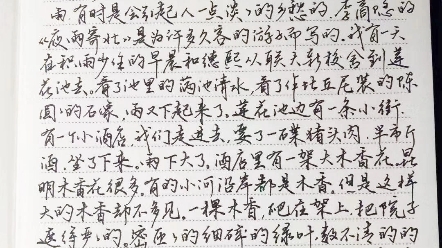 雨,有时是会引起人一点淡淡的乡愁的。李商隐的
《夜雨寄北》是为许多久客的游子而写的。我有一天
在积雨少住的早晨和德熙从联大新校舍到莲
花池去。看了池里的满池清水,看了作比丘尼装的陈
圆圆的石像,雨又下起来了。莲花池边有一条小街,
有一个小酒店,我们走进去,要了一碟猪头肉,半市斤
酒,坐了下来。雨下大了。酒店里有一架大木香花。昆
明木香花很多。有的小河沿岸都是木香。但是这样
大的木香却不多见。一棵木香,爬在架上,把院子
遮得严严的。密匝匝的细碎的绿叶,数不清的的